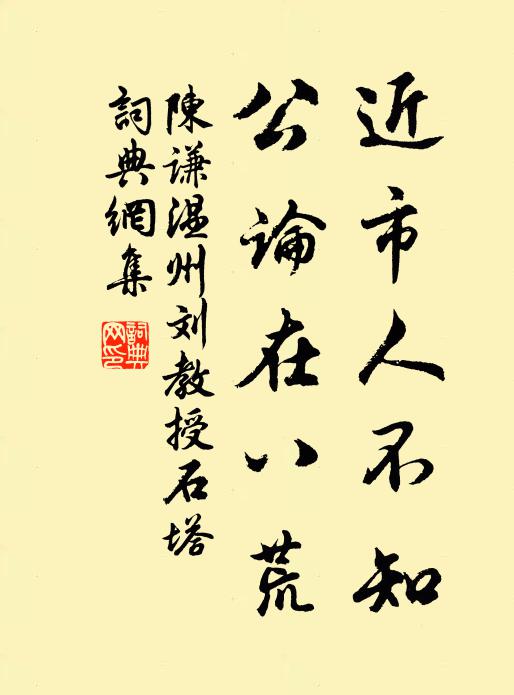 近市人不知
公論在八荒
陳谦温州刘教授石塔
詞典網集
詞典網印